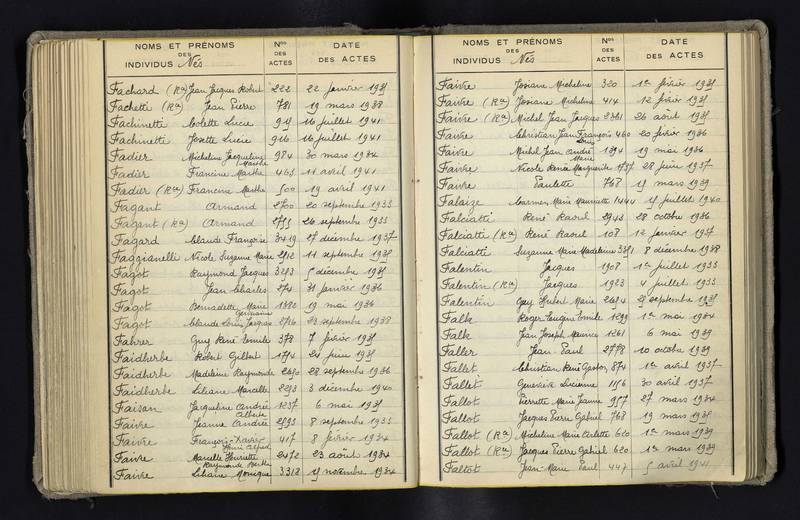 NOMS ET PRÉNOMS DES INDIVIDUS Nés Nos DES ACTES DATE DES ACTES
Fachard (Ra) Jean Jacques Robert 222 22 janvier 1935
Fachetti (Ra) Jean Pierre 781 19 mars 1938
Fachinetti Colette Lucie 915 16 juillet 1941
Fachinetti Josette Lucie 916 16 juillet 1941
Fadier Micheline Jacqueline Marthe 984 30 mars 1934
Fadier Francine Marthe 465 11 avril 1941
Fadier (Ra) Francine Marthe 500 19 avril 1941
Fagant Armand 2700 20 septembre 1933
Fagant (Ra) Armand 2755 26 septembre 1933
Fagard Claude Françoise 3419 27 décembre 1937
Faggianelli Nicole Suzanne Marie 2512 11 septembre 1935
Fagot Raymond Jacques 3253 5 décembre 1935
Fagot Jean Charles 274 31 janvier 1936
Fagot Bernadette Marie Germaine 1380 19 mai 1936
Fagot Claude Louis Jacques 2726 23 septembre 1938
Fahrer Guy René Emile 378 7 février 1935
Faidherbe Robert Gilbert 1754 24 juin 1935
Faidherbe Madeleine Raymonde 2650 28 septembre 1936
Faidherbe Liliane Marcelle 2253 3 décembre 1940
Faisan Jacqueline Andrée Alberte 1237 6 mai 1935
Faivre Jeanne Andrée 2593 8 septembre 1933
Faivre François-Xavier Henri Alfred 417 8 février 1934
Faivre Marcelle Henriette Raymonde Berthe 2472 23 août 1934
Faivre Liliane Monique 3312 15 novembre 1934
NOMS ET PRÉNOMS DES INDIVIDUS Nés Nos DES ACTES DATE DES ACTES
Faivre Josiane Micheline 320 1er février 1935
Faivre (Ra) Josiane Micheline 414 12 février 1935
Faivre (Ra) Michel Jean Jacques 2361 26 août 1935
Faivre Christian Jean François Louis 460 20 février 1936
Faivre Michel Jean André Marie 1394 19 mai 1936
Faivre Nicole Renée Marguerite 1757 28 juin 1937
Faivre Paulette 768 15 mars 1939
Falaize Carmen Marie Mauricette 1444 15 juillet 1940
Falciatti René Raoul 2943 28 octobre 1936
Falciatti (Ra) René Raoul 108 12 janvier 1937
Falciatti Suzanne Marie Madeleine 3351 8 décembre 1938
Falentin Jacques 1908 1er juillet 1933
Falentin (Ra) Jacques 1923 4 juillet 1933
Falentin Guy Hubert Marie 2654 25 septembre 1935
Falk Roger Eugène Emile 1299 1er mai 1934
Falk Jean Joseph Maurice 1261 6 mai 1939
Faller Jean Paul 2778 10 octobre 1939
Fallet Christian René Gaston 874 1er avril 1937
Fallet Geneviève Lucienne 1156 30 avril 1937
Fallot Pierrette Marie Jeanne 957 27 mars 1934
Fallot Jacques Pierre Gabriel 768 19 mars 1935
Fallot (Ra) Micheline Marie Arlette 620 1er mars 1939
Fallot (Ra) Jacques Pierre Gabriel 620 1er mars 1939
Fallot Jean-Marie Paul 447 5 avril 1941